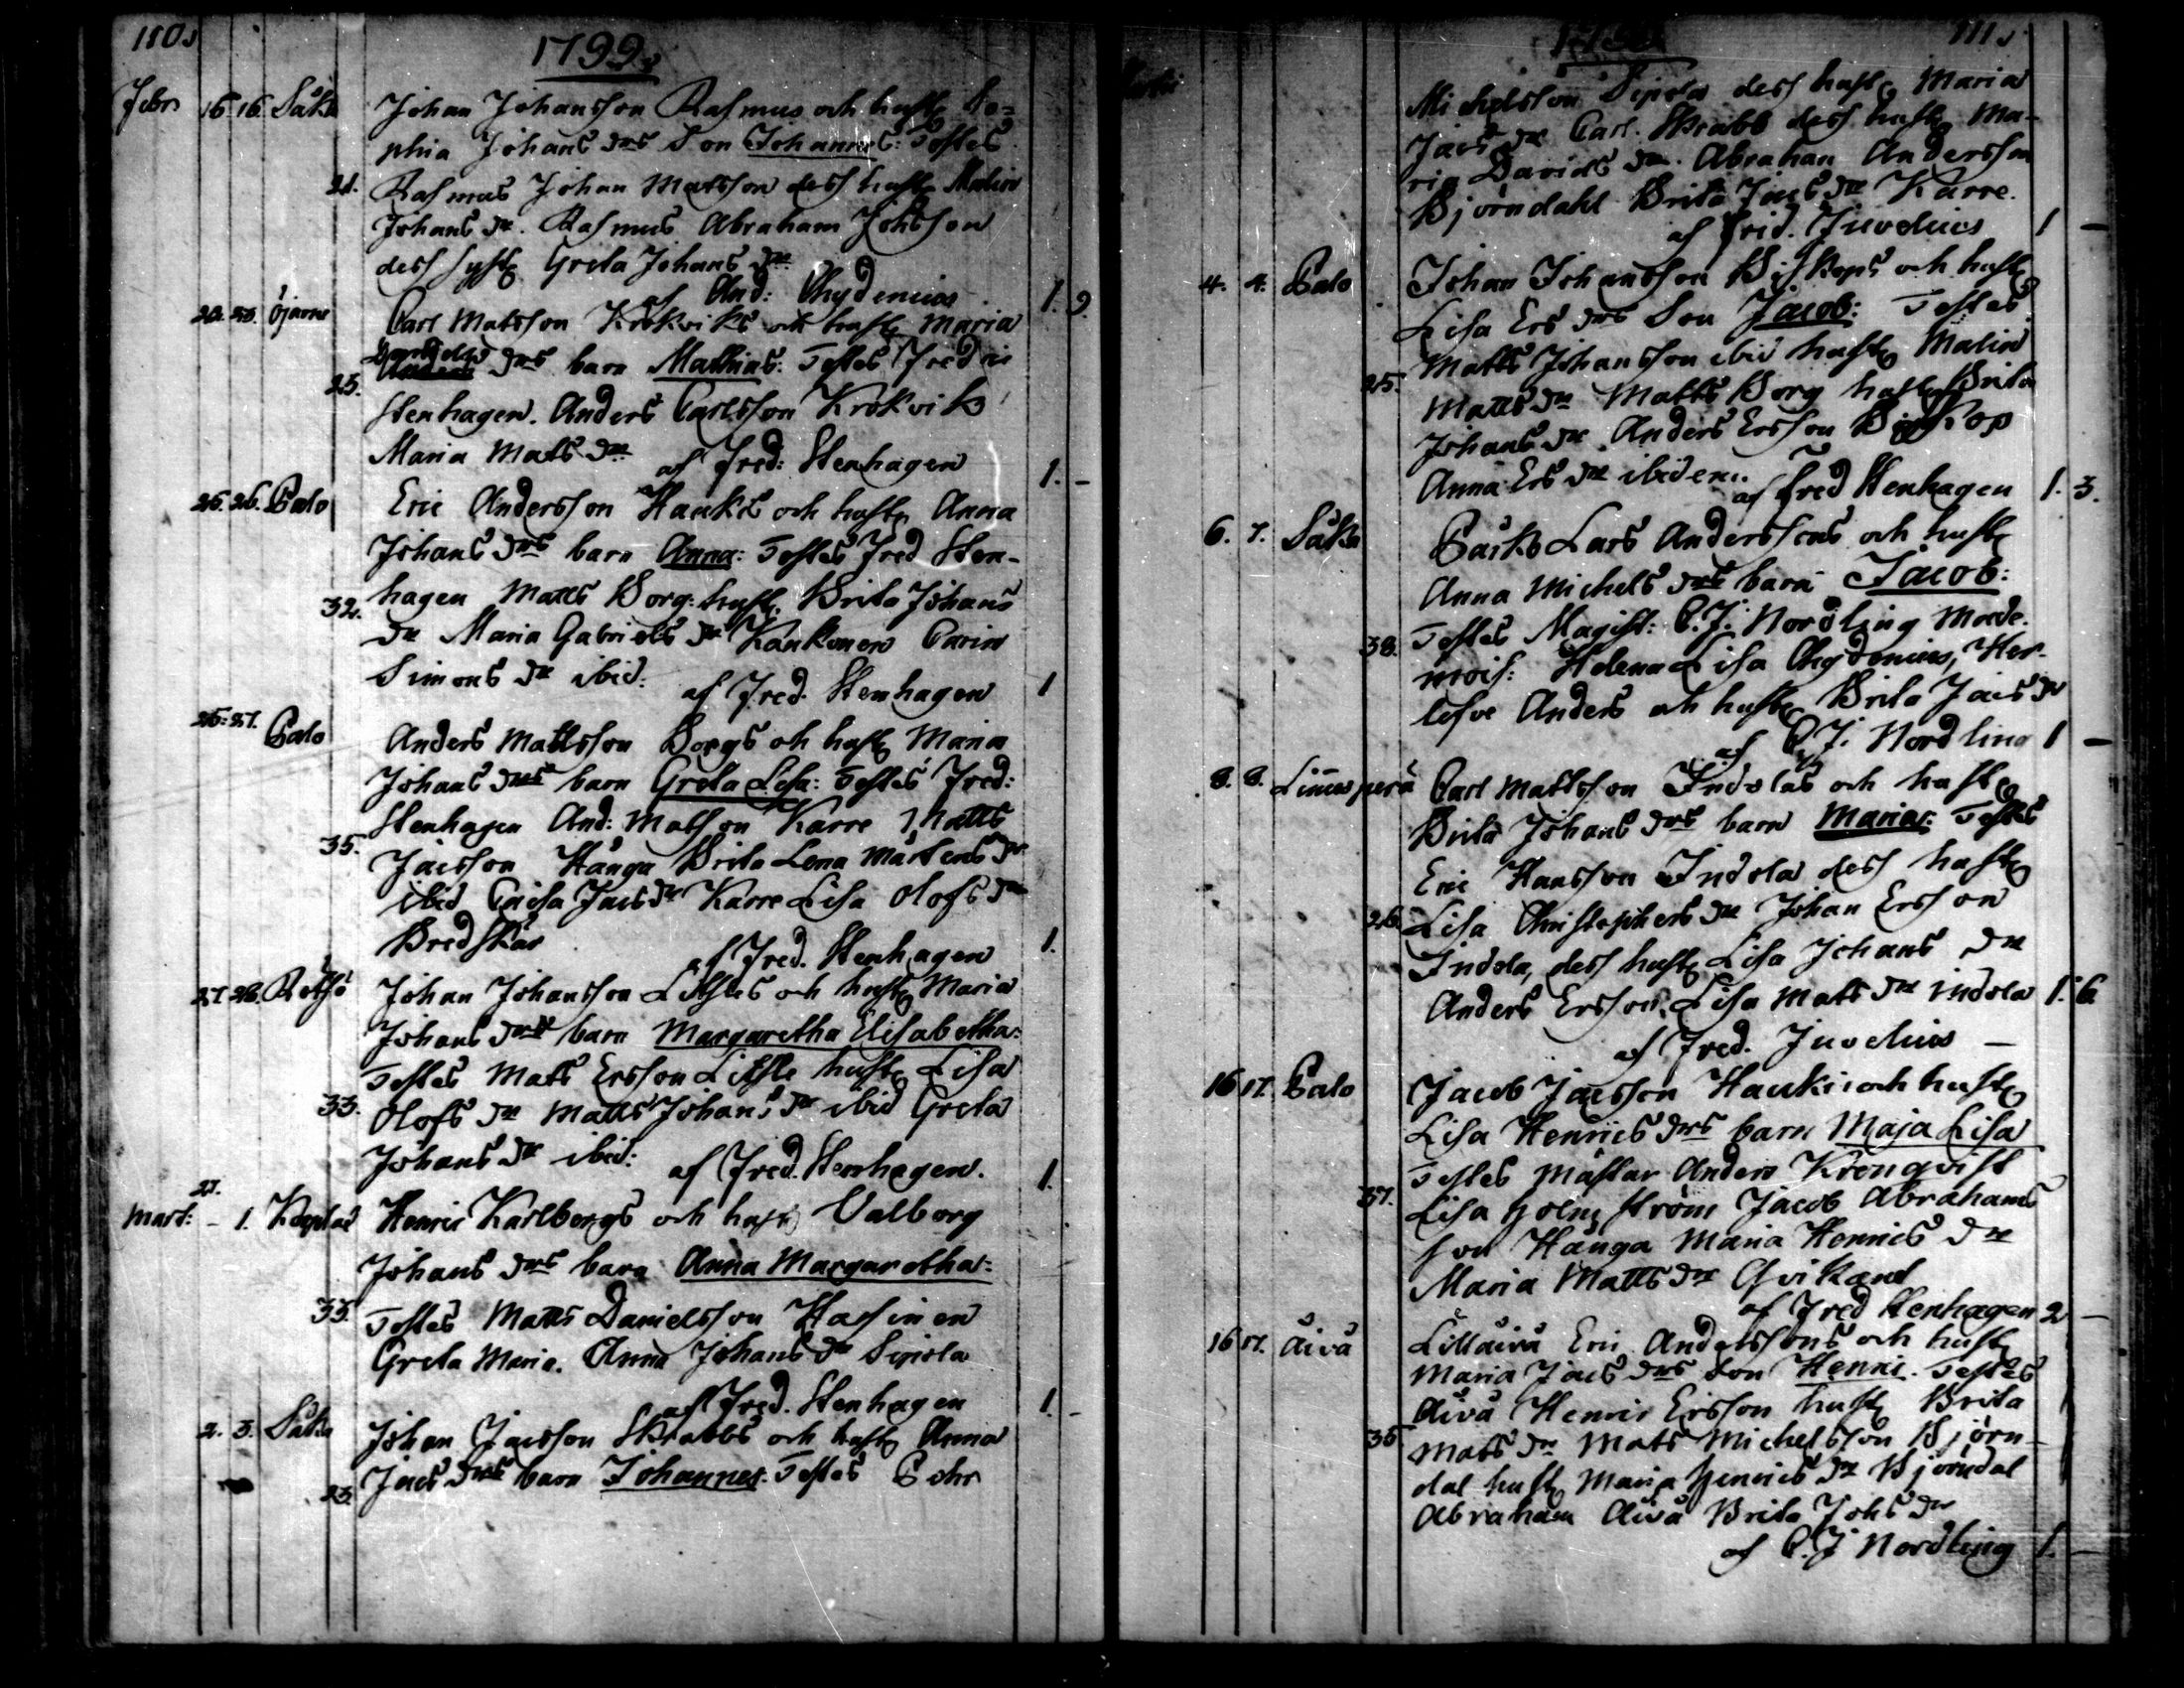 110.
1799.
Febr 15. 16. Såka Johan Johansson Rasmus och hustr So=
phia Johans drs Son Johannes: Testes
21. Rasmus Johan Matsson dess hustr Malin
Johans dr. Rasmus Abraham Johsson
dess syst Greta Johans dr
af And: Chydenius 1. 9
22. 23. Öjarne Carl Matsson Krokviks och hustr Maria
drs barn Mathias: Testes Fredric
25. Stenhagen. Anders Carlsson Krokvik
Maria Mats dr af Fred: Stenhagen 1. -
25. 26. Calo Eric Andersson Hauki och hustr Anna
Johans drs barn Anna: Testes Fred Sten-
hagen Matts Borg: hustr. Brita Johans
32. dr Maria Gabriels dr Kaukonen Carin
Simons dr ibid: af Fred. Stenhagen 1
25. 27. Calo Anders Mattsson Borgs och hustr Maria
Johans drs barn Greta Lisa: Testes Fred:
Stenhagen And: Matsson Karre Matts
35. Jacsson Hånga Brita Lena Mårtens dr
ibid Caisa Jacs dr Karre Lisa Olofs dr
Bredskär af Fred. Stenhagen 1.
27. 28. Rötsö Johan Johansson Litsles och hustr Maria
Johans drs barn Margaretha Elisabetha:
Testes Mats Ersson Litsle hustr Lisa
33. Olofs dr Matts Johans dr ibid Greta
Johans dr ibid: af Fred. Stenhagen. 1.
27.
Mart: - 1. Kaplas Henric Karlbergs och hustr Valborg
Johans drs barn Anna Margaretha:
33. Testes Matts Danielsson Hassinen
Greta Maria. Anna Johans dr Sipola
af Fred. Stenhagen 1. -
2. 3. Såka Johan Jacsson Skrabbs och hustr Anna
23. Jacs drs barn Johannes: Testes Johs
111.
Michelsson Sipola dess hustr Maria
Jacs dr Carl Skrabb dess hustr Ma-
ria Davids dr. Abraham Andersson
Björndahl Brita Jacs dr Karre.
af Frid. Juvelius 1 -
4. 4. Calo Johan Johansson Biskops och hustr
Lisa Ers drs Son Jacob: Testes
Matts Johansson ibid hustr Malin
25. Matts dr Matts Borg hustr Brita
Johans dr Anders Ersson Biskop
Anna Ers dr ibidem. af Fred Stenhagen 1. 3.
6. 7. Såka Cärks Lars Anderssons och hustr
Anna Michels drs barn Jacob:
38. Testes Magist: C. J. Nordling Made-
mois: Helena Lisa Chydenius, Her-
lefve Anders och hustr Brita Jacs dr
af C. J. Nordling 1 -
8. 8. Linnusperä Carl Mattsson Indolas och hustr
Brita Johans drs barn Maria: Testes
Eric Hansson Indola dess hustr
26. Lisa Christophers dr Johan Ersson
Indola, dess hustr Lisa Johans dr
Anders Ersson. Lisa Mats dr indola 1. 6
af Fred. Juvelius -
16 17. Calo Jacob Jacsson Hauki och hustr
Lisa Henrics drs barn Maja Lisa
Testes Mästar Anders Kronqvist
37. Lisa Holmström Jacob Abrahams
son Hånga Maria Henrics dr
Maria Matts dr Qvikant
af Fred Stenhagen 2 -
16 17. Åivå Lillåivå Eric Anderssons och hustr
Maria Jacs drs Son Henric. Testes
Åivå Henric Ersson hustr Brita
35 Mats dr Mats Michelsson Björn-
dal hustr Maria Henrics dr Björndal
Abraham Åivå Brita Johs dr
af C. J Nordling 1. -